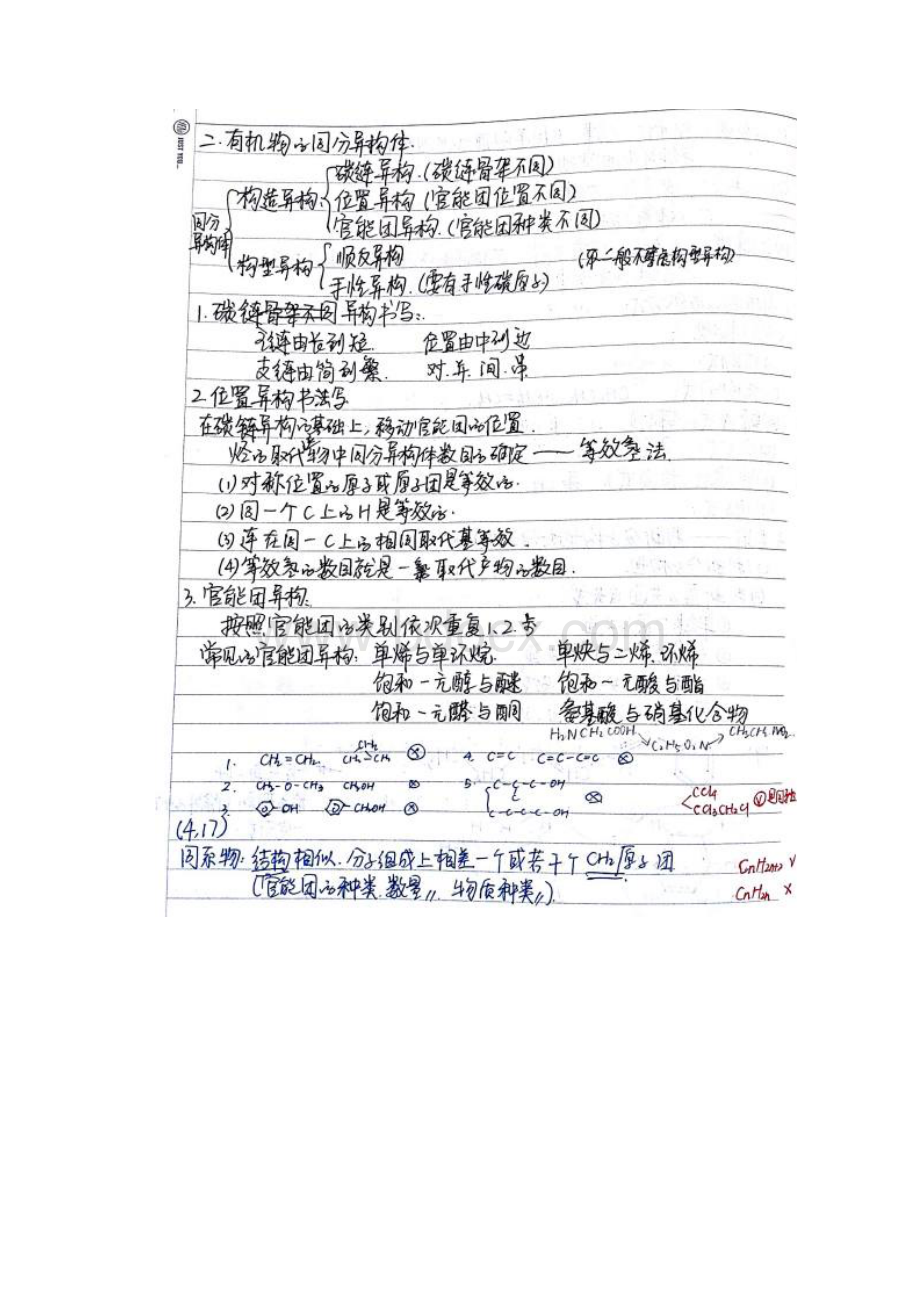 二.有机物的同分异构体.
同分异构体
构造异构
碳链异构.(碳链骨架不同)
位置异构(官能团位置不同)
官能团异构.(官能团种类不同)
构型异构
顺反异构
手性异构.(要有手性碳原子)
1.碳链骨架不同异构书写:
主链由长到短. 位置由中到边
支链由简到繁. 对.并.间.吊
2.位置异构书法写
在碳链异构的基础上,移动官能团的位置.
烃的取代产物中同分异构体数目的确定——等效氢法.
(1)对称位置的原子或原子团是等效的.
(2)同一个C上的H是等效的.
(3)连在同一C上的相同取代基等效.
(4)等效氢的数目就是一氯取代产物的数目.
3.官能团异构:
按照官能团的类别依次重复1、2步
常见的官能团异构:单烯与单环烷. 单炔与二烯.环烯
饱和一元醇与醚 饱和一元酸与酯
饱和一元醛与酮 氨基酸与硝基化合物
H2NCH2COOH C2H5O2N CH3CH2NO2
1. CH2=CH2 CH2 CH2-CH2 ⊗ 4. C=C C=C-C=C ⊗
2. CH3-O-CH3 CH3OH ⊗ 5. C-C-C-OH C C-C-C-C-OH ⊗
3. -OH -CH2OH ⊗
CCl4
CCl3CH2Cl
(4,17)
同系物:结构相似.分子组成上相差一个或若干个CH2原子团
(官能团的种类.数量〃.物质种类〃).
CnH2n+2 √
CnH2n ×